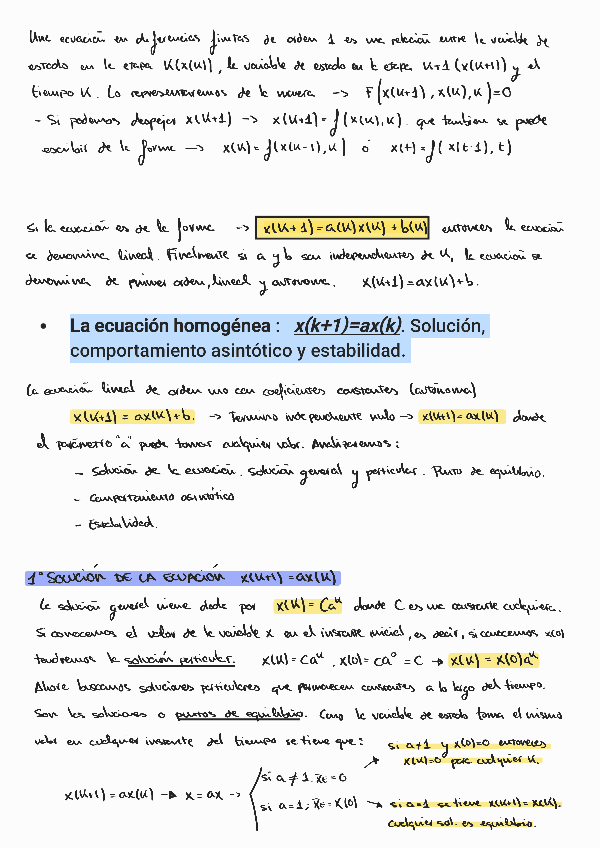 Una ecuación en diferencias finitas de orden 1 es una relación entre la variable de
estado en la etapa K(x(K)), la variable de estado en la etapa K+1 (x(K+1)) y el
tiempo K. Lo representaremos de la manera -> F(x(K+1), x(K), K)=0
- Si podemos despejar x(K+1) -> x(K+1) = f(x(K), K). que también se puede
escribir de la forma -> x(K) = f(x(K-1), K) ó x(t) = f(x(t-1), t)
Si la ecuación es de la forma -> x(K+1) = a(K)x(K) + b(K) entonces la ecuación
se denomina lineal. Finalmente si a y b son independientes de K, la ecuación se
denomina de primer orden, lineal y autónoma. x(K+1) = ax(K)+b.
• La ecuación homogénea : x(k+1)=ax(k). Solución,
comportamiento asintótico y estabilidad.
La ecuación lineal de orden uno con coeficientes constantes (autónoma)
x(K+1) = ax(K)+b. -> Término independiente nulo -> x(K+1) = ax(K) donde
el parámetro "a" puede tomar cualquier valor. Analizaremos:
- Solución de la ecuación. Solución general y particular. Punto de equilibrio.
- Comportamiento asintótico
- Estabilidad.
1º SOLUCIÓN DE LA ECUACIÓN x(K+1) = ax(K)
La solución general viene dada por x(K) = Ca^K donde C es una constante cualquiera.
Si conocemos el valor de la variable x en el instante inicial, es decir, si conocemos x(0)
tendremos la solución particular. x(K) = Ca^K, x(0) = Ca^0 = C -> x(K) = x(0)a^K
Ahora buscamos soluciones particulares que permanecen constantes a lo largo del tiempo.
Son las soluciones o puntos de equilibrio. Como la variable de estado toma el mismo
valor en cualquier instante del tiempo se tiene que:
si a≠1 y x(0)=0 entonces
x(K)=0 para cualquier K.
x(K+1) = ax(K) -> x = ax ->
si a ≠ 1. x_E = 0
si a = 1; x_E = x(0) -> si a=1 se tiene x(K+1) = x(K).
cualquier sol. es equilibrio.